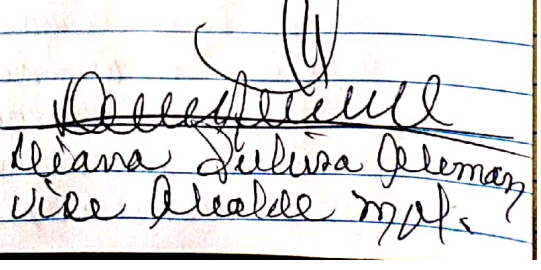 Diana Julissa Aleman
Vice Alcalde mpl.